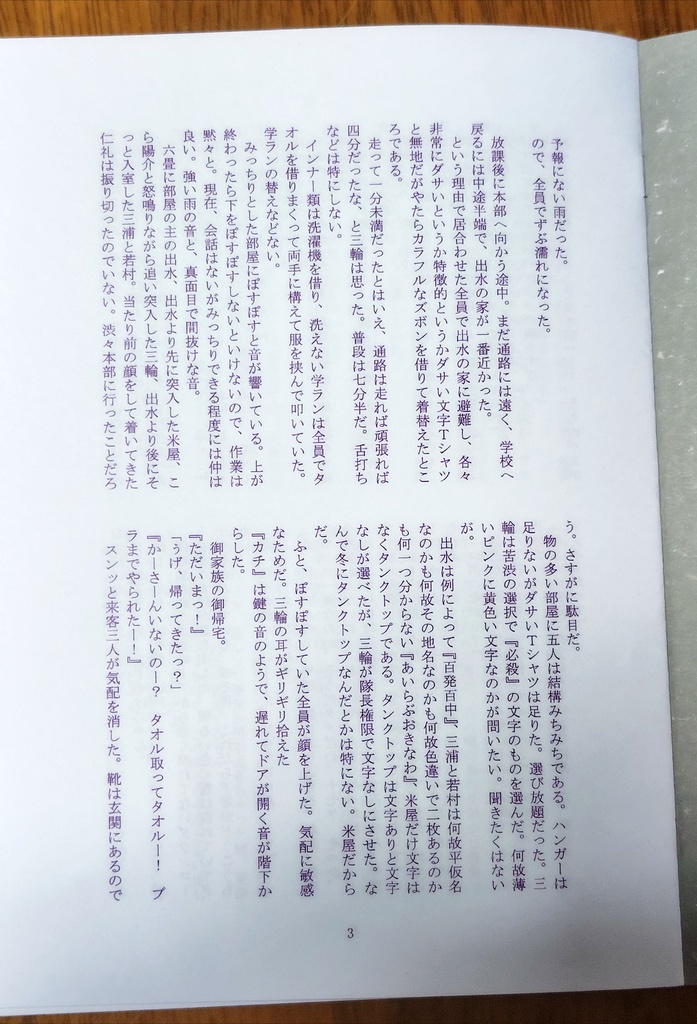 予報にない雨だった。
ので、全員でずぶ濡れになった。
放課後に本部へ向かう途中。まだ通路には遠く、学校へ
戻るには中途半端で、出水の家が一番近かった。
という理由で居合わせた全員で出水の家に避難し、各々
非常にダサいというか特徴的というかダサい文字Tシャツ
と無地だがやたらカラフルなズボンを借りて着替えたとこ
ろである。
走って一分未満だったとはいえ、通路は走れば頑張れば
四分だったな、と三輪は思った。普段は七分半だ。舌打ち
などは特にしない。
インナー類は洗濯機を借り、洗えない学ランは全員でタ
オルを借りまくって両手に構えて服を挟んで叩いていた。
学ランの替えなどない。
みっちりとした部屋にぽすぽすと音が響いている。上が
終わったら下をぽすぽすしないといけないので、作業は
黙々と。現在、会話はないがみっちりできる程度には仲は
良い。強い雨の音と、真面目で間抜けな音。
六畳に部屋の主の出水、出水より先に突入した米屋、こ
ら陽介と怒鳴りながら追い突入した三輪、出水より後にそ
っと入室した三浦と若村。当たり前の顔をして着いてきた
仁礼は振り切ったのでいない。渋々本部に行ったことだろ
う。さすがに駄目だ。
物の多い部屋に五人は結構みちみちである。ハンガーは
足りないがダサいTシャツは足りた。選び放題だった。三
輪は苦渋の選択で『必殺』の文字のものを選んだ。何故薄
いピンクに黄色い文字なのかが問いたい。聞きたくはない
が。
出水は例によって『百発百中』、三浦と若村は何故平仮名
なのかも何故その地名なのかも何故色違いで二枚あるのか
も何一つ分からない『あいらぶおきなわ』、米屋だけ文字は
なくタンクトップである。タンクトップは文字ありと文字
なしが選べたが、三輪が隊長権限で文字なしにさせた。な
んで冬にタンクトップなんだとかは特にない。米屋だから
だ。
ふと、ぽすぽすしていた全員が顔を上げた。気配に敏感
なためだ。三輪の耳がギリギリ拾えた
『カチ』は鍵の音のようで、遅れてドアが開く音が階下か
らした。
御家族の御帰宅。
『ただいまっ！』
「うげ、帰ってきたっ？」
『かーさーんいないのー？　タオル取ってタオルー！　ブ
ラまでやられたー！』
スンッと来客三人が気配を消した。靴は玄関にあるので
3